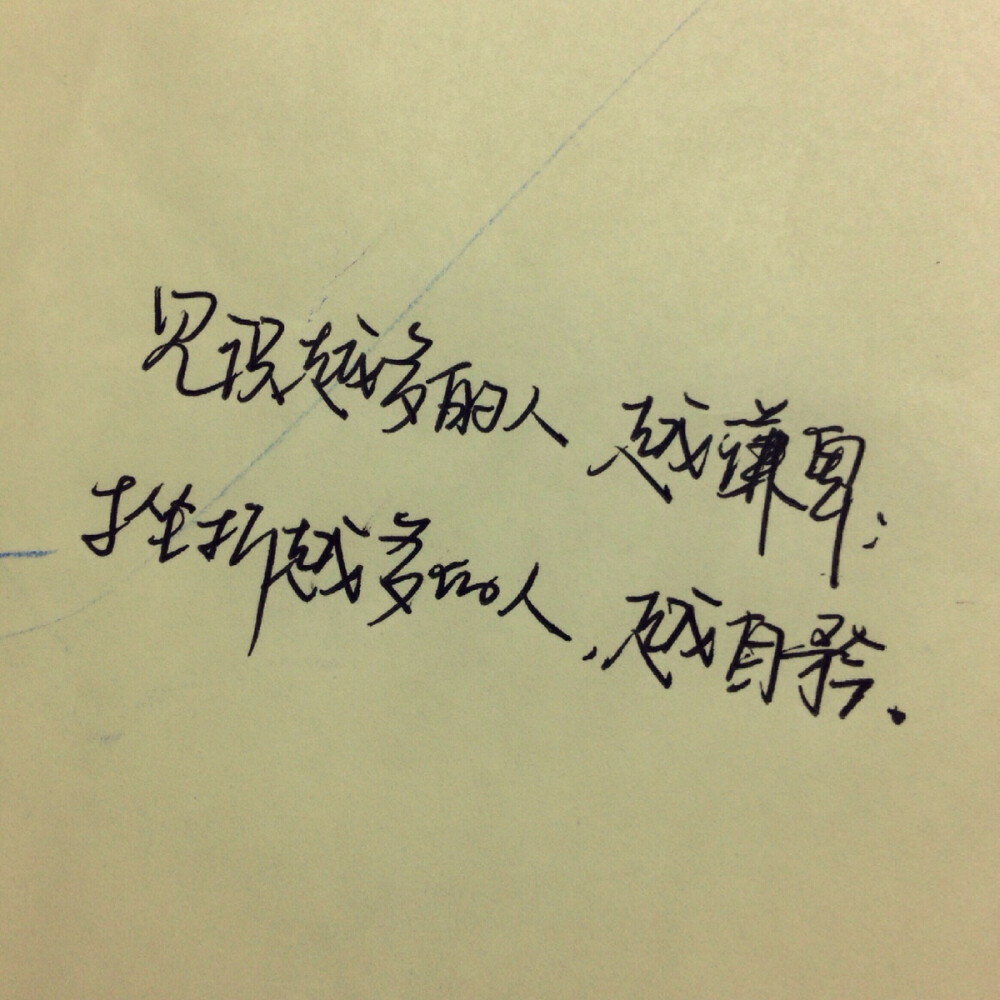 见识越多的人 越谦卑；
挫折越多的人，越自.